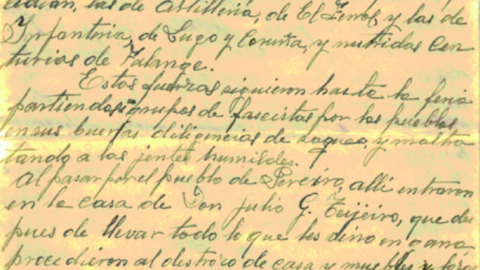 las de Artillería, de El Ferrol y las de
Infanteria, de Lugo y Coruña, y nutridas Cen
turias de Falange.
Estas fuerzas siguieron hasta la feria
partiendose grupos de fascistas por los pueblos
en sus buenas diligencias de saqueo, y maltra
tando a las jentes humildes.
Al pasar por el pueblo de Pereiro, allí entraron
en la casa de Don Julio G. Teijeiro, que des
pues de llevar todo lo que les dino en gana
procedieron al destrozo de casa y muebles y